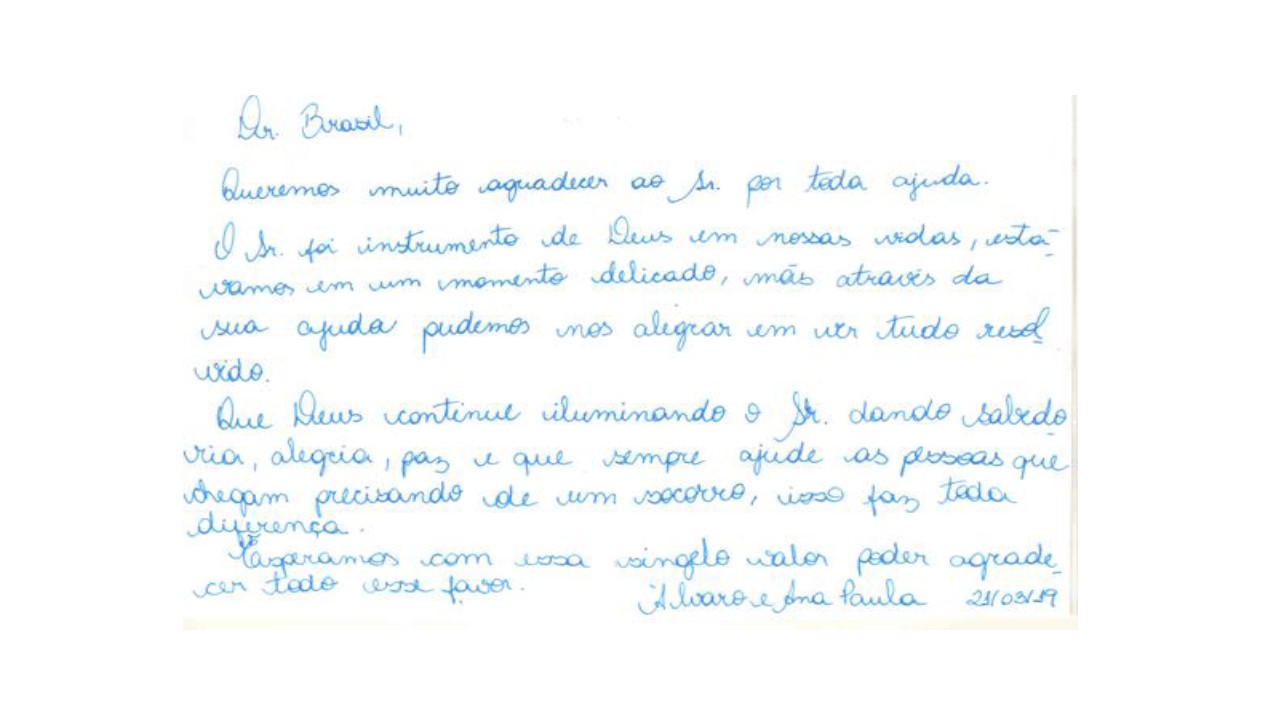 Dr. Brasil,
Queremos muito agradecer ao Sr. por toda ajuda.
O Sr. foi instrumento de Deus em nossas vidas, está-
vamos em um momento delicado, más através da
sua ajuda pudemos nos alegrar em ver tudo resol
vido.
Que Deus continue iluminando o Sr. dando sabedo
ria, alegria, paz e que sempre ajude as pessoas que
chegam precisando de um socorro, isso faz toda
diferença.
Esperamos com essa singelo valor poder agrade
cer todo esse favor.
Alvaro e Ana Paula 21/03/19